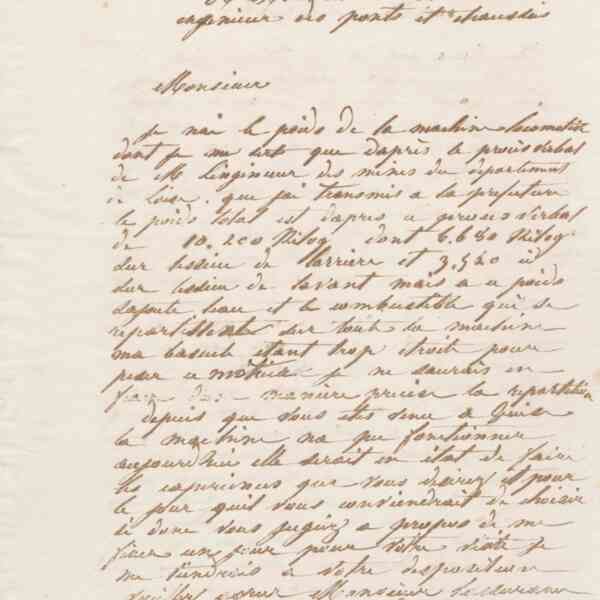 ingenieur des ponts et chaussées
Monsieur
Je n'ai le poids de la machine locomotive
dont je me sers que daprès le procès verbal
de M Lingenieur des mines du departement
de Loise, que j'ai transmis a la prefecture
le poids total est dapres ce procès verbal
de 10.200 Kilog dont 6.680 Kilog
sur lessieu de larriere et 3,520 id
sur lessieu de lavant mais a ce poids
sajoute leau et le combustible qui se
repartissent sur toute la machine
ma bascule etant trop etroite pour
peser ce je ne saurais en
faire dune maniere precise la repartition
depuis que vous etes venu a Guise
la machine na pu fonctionner
aujourdhui elle serait en etat de faire
les experiences que vous desirez et pour
le jour quil vous conviendrait de choisir
si donc vous jugiez a propos de me
fixer un jour pour votre visite je
me tiendrais a votre disposition
Monsieur